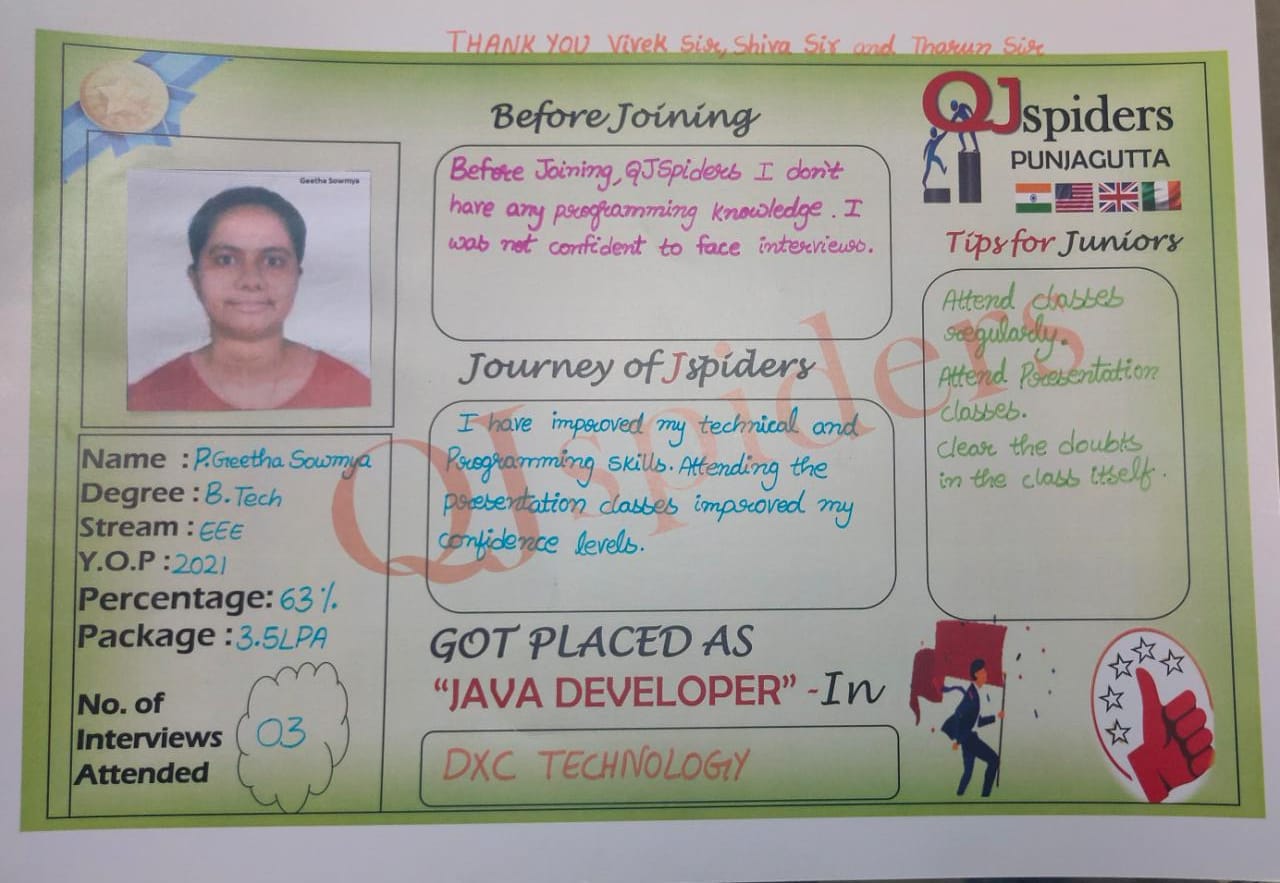 THANK YOU Vivek Sir, Shiva Sir and Tharun Sir
Geetha Sowmya
Name : P.Geetha Sowmya
Degree : B.Tech
Stream : EEE
Y.O.P : 2021
Percentage: 63%.
Package : 3.5LPA
No. of
Interviews
Attended
03
Before Joining
Before Joining, QJSpiders I don't
have any programming knowledge. I
was not confident to face interviews.
Journey of Jspiders
I have improved my technical and
Programming skills. Attending the
presentation classes improved my
confidence levels.
GOT PLACED AS
"JAVA DEVELOPER" -In
DXC TECHNOLOGY
QJspiders
PUNJAGUTTA
Tips for Juniors
Attend classes
regularly.
Attend Presentation
classes.
clear the doubts
in the class itself.
QJspiders